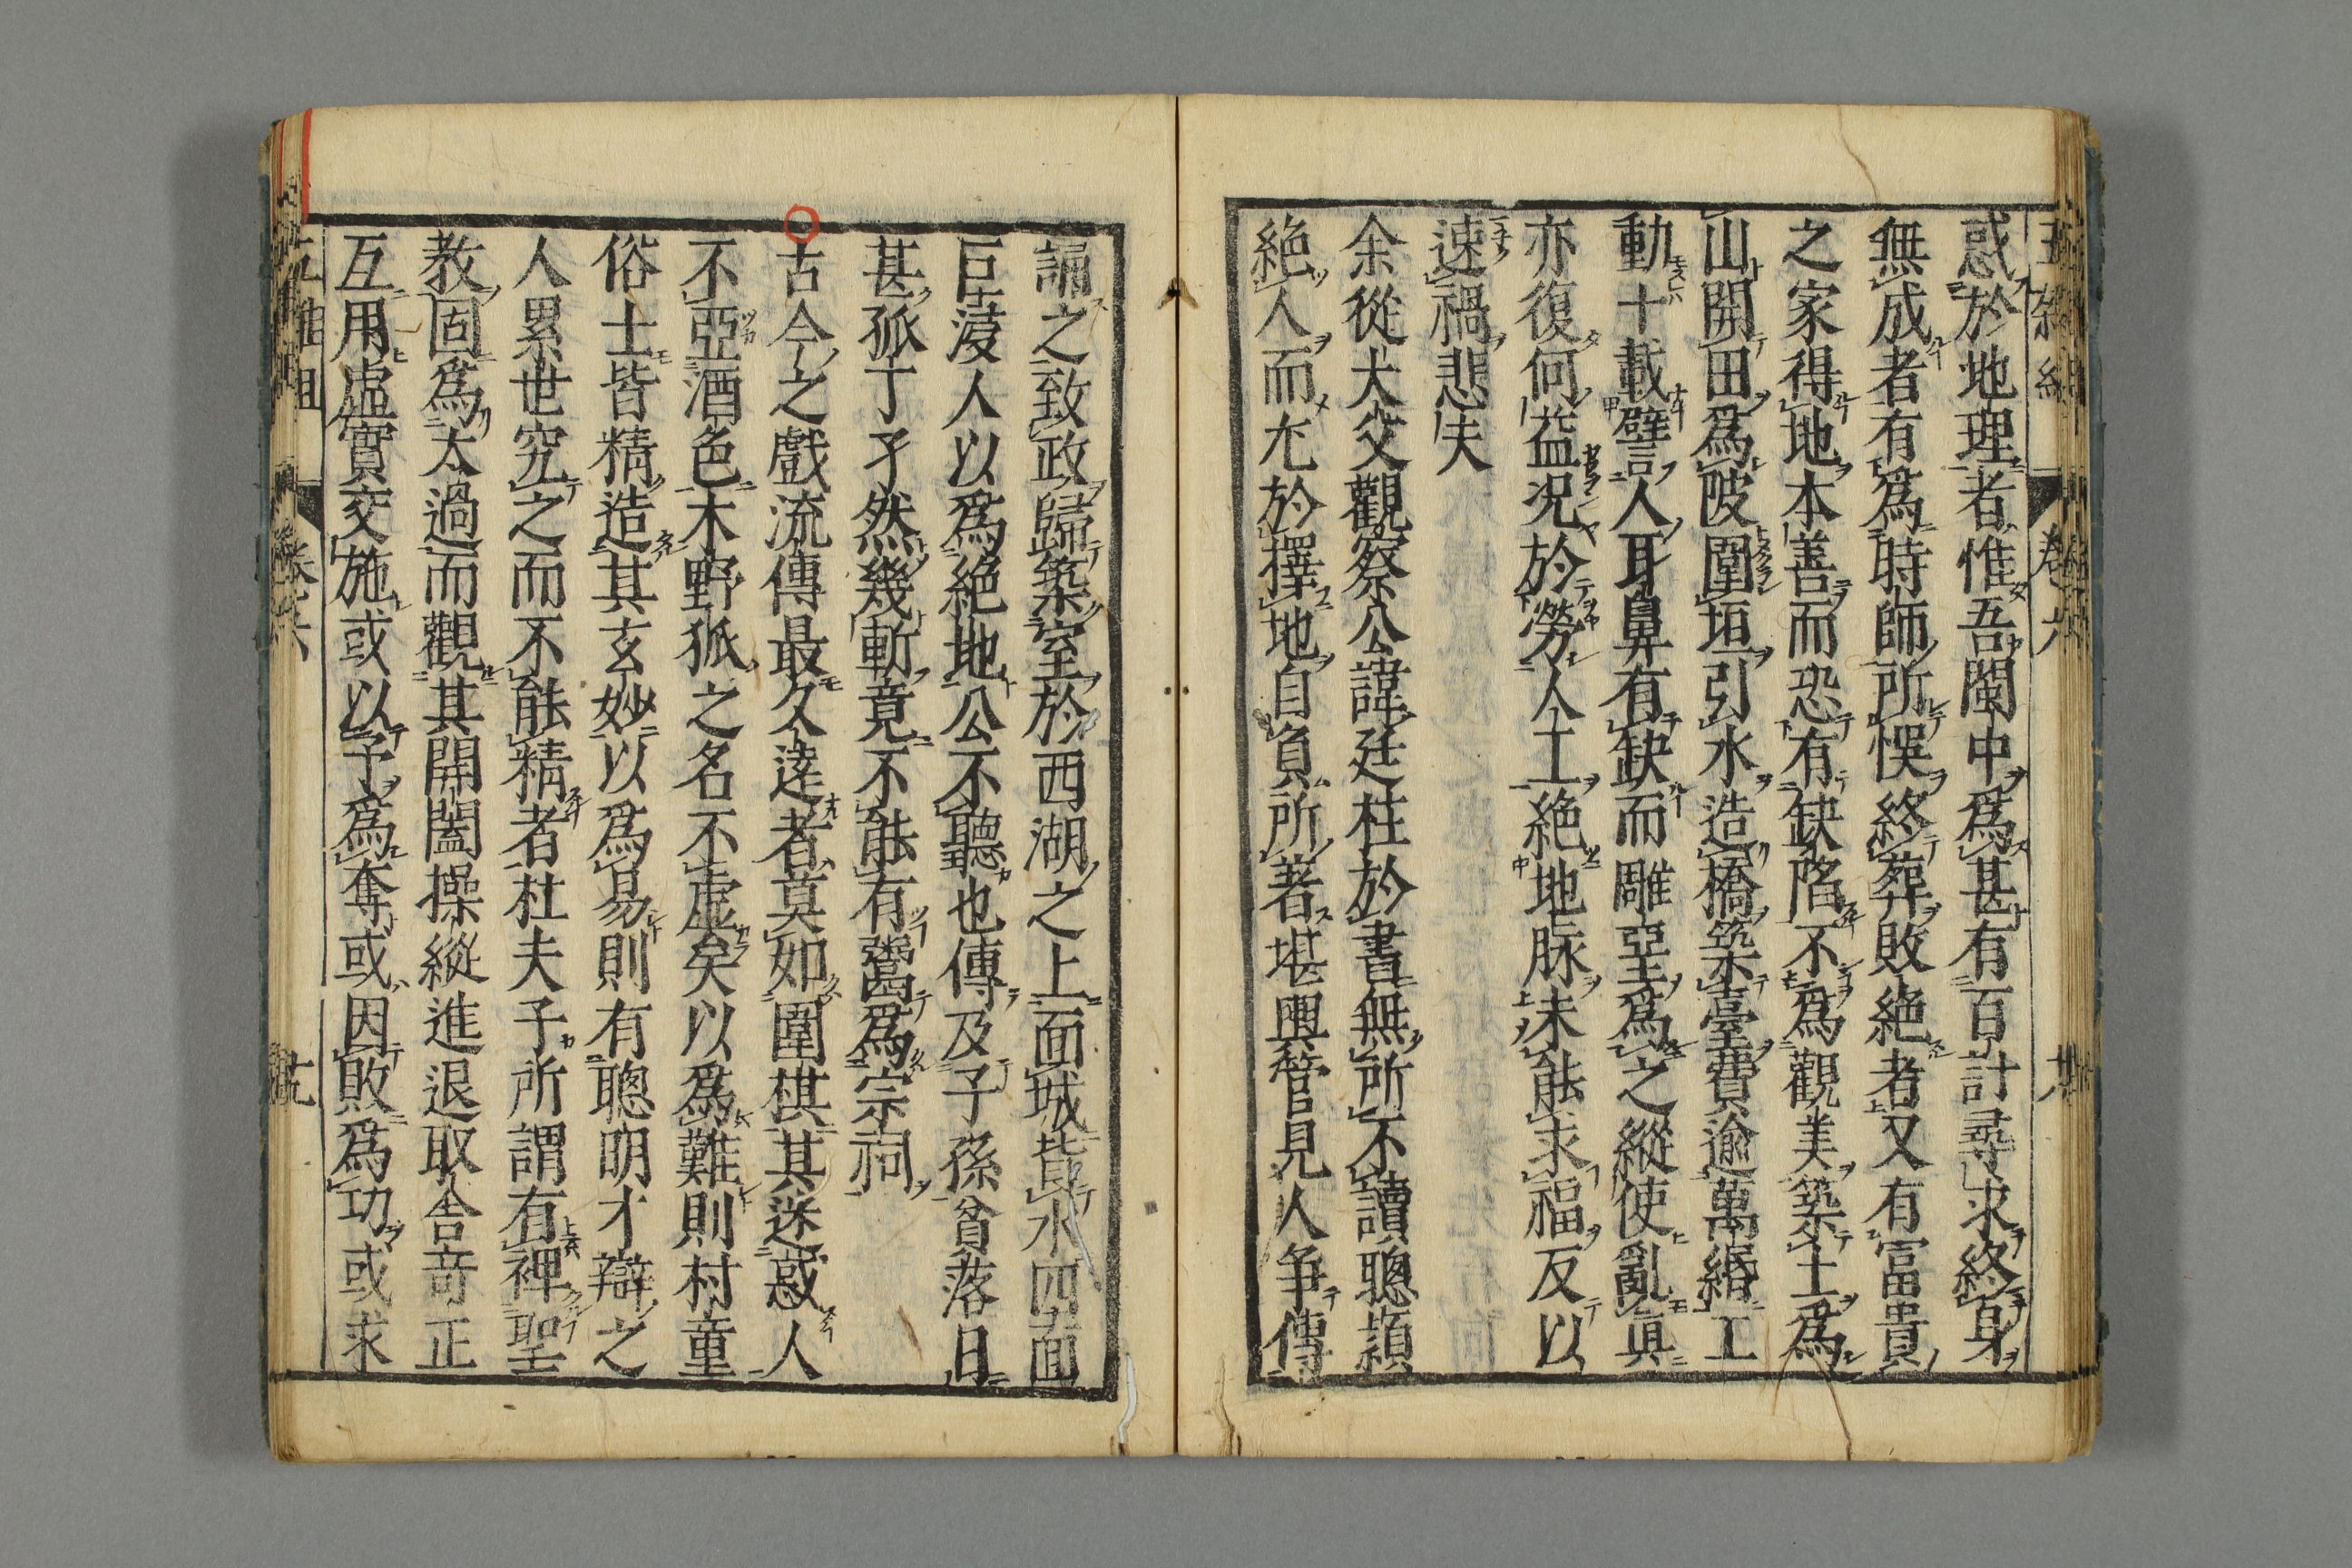 惑於地理者惟吾閩中爲甚有百計尋求終身
無成者有爲時師所悞終葬敗絶者又有富貴
之家得地本善而恐有缺陷不爲觀美築土爲
山開田爲陂圍垣引水造橋築臺費逾萬緡工
動十載譬人耳鼻有缺而雕堊爲之縱使亂眞
亦復何益况於勞人工絶地脉未能求福反以
速禍悲夫
余從大父觀察公諱廷柱於書無所不讀聰頴
絶人而尤於擇地自負所著堪輿管見人争傳
誦之致政歸築室於西湖之上面城背水四面
巨浸人以爲絶地公不聽也傳及子孫貧落日
甚孤丁孑然幾斬竟不能有鬻爲宗祠
古今之戲流傳最久遠者莫如圍棋其迷惑人
不亞酒色木野狐之名不虚矣以爲難則村童
俗士皆精造其玄妙以爲易則有聰明才辯之
人累世究之而不能精者杜夫子所謂有裨聖
教固爲太過而觀其開闔操縱進退取舍奇正
互用虚實交施或以予爲奪或因敗爲功或求
卷六